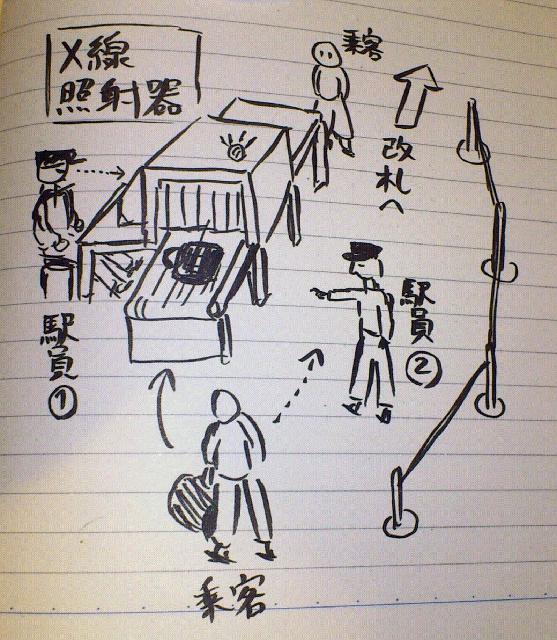 X線
照射器
乗客
改札へ
駅員①
駅員②
乗客